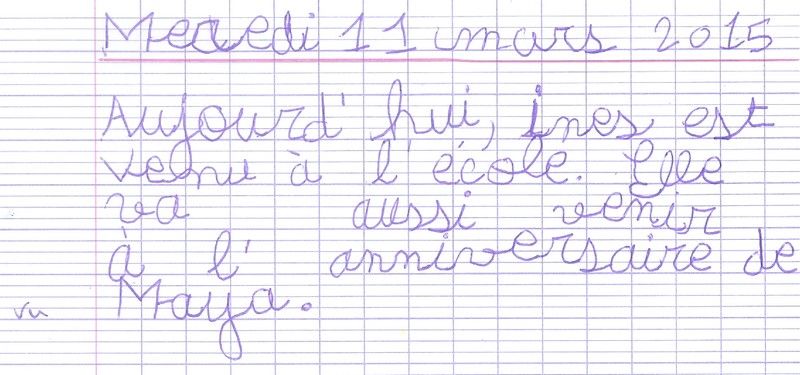 Mercredi 11 mars 2015
Aujourd'hui, ines est
venu à l'école. Elle
va aussi venir
à l'anniversaire de
vu Maya.